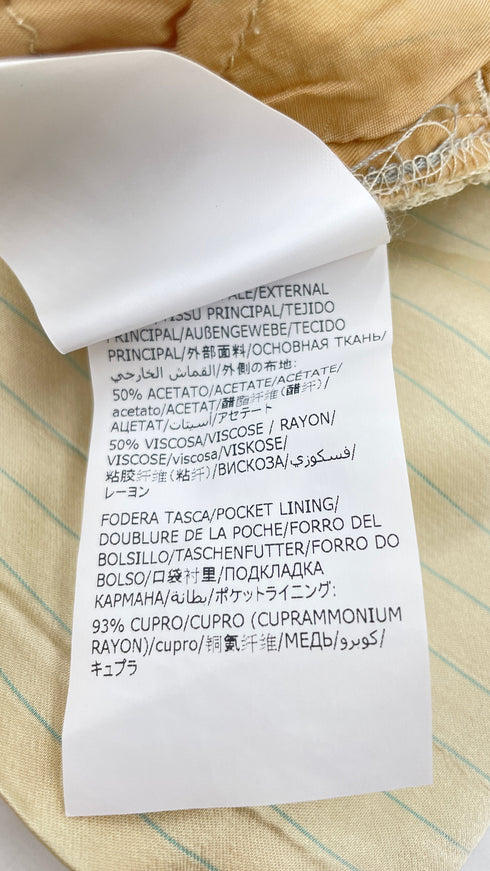 ALE/EXTERNAL
TISSU PRINCIPAL/TEJIDO
PRINCIPAL/AUßENGEWEBE/TECIDO
PRINCIPAL/外部面料/ОСНОВНАЯ ТКАНЬ/
القماش الخارجي/外側の布地:
50% ACETATO/ACETATE/ACÉTATE/
acetato/ACETAT/醋酯纤维(醋纤)/
АЦЕТАТ/أسيتات/アセテート
50% VISCOSA/VISCOSE / RAYON/
VISCOSE/viscosa/VISKOSE/
粘胶纤维(粘纤)/ВИСКОЗА/فسكوزي/
レーヨン
FODERA TASCA/POCKET LINING/
DOUBLURE DE LA POCHE/FORRO DEL
BOLSILLO/TASCHENFUTTER/FORRO DO
BOLSO/口袋衬里/ПОДКЛАДКА
КАРМАНА/بطانة/ポケットライニング:
93% CUPRO/CUPRO (CUPRAMMONIUM
RAYON)/cupro/铜氨纤维/МЕДЬ/كوبرو/
キュプラ